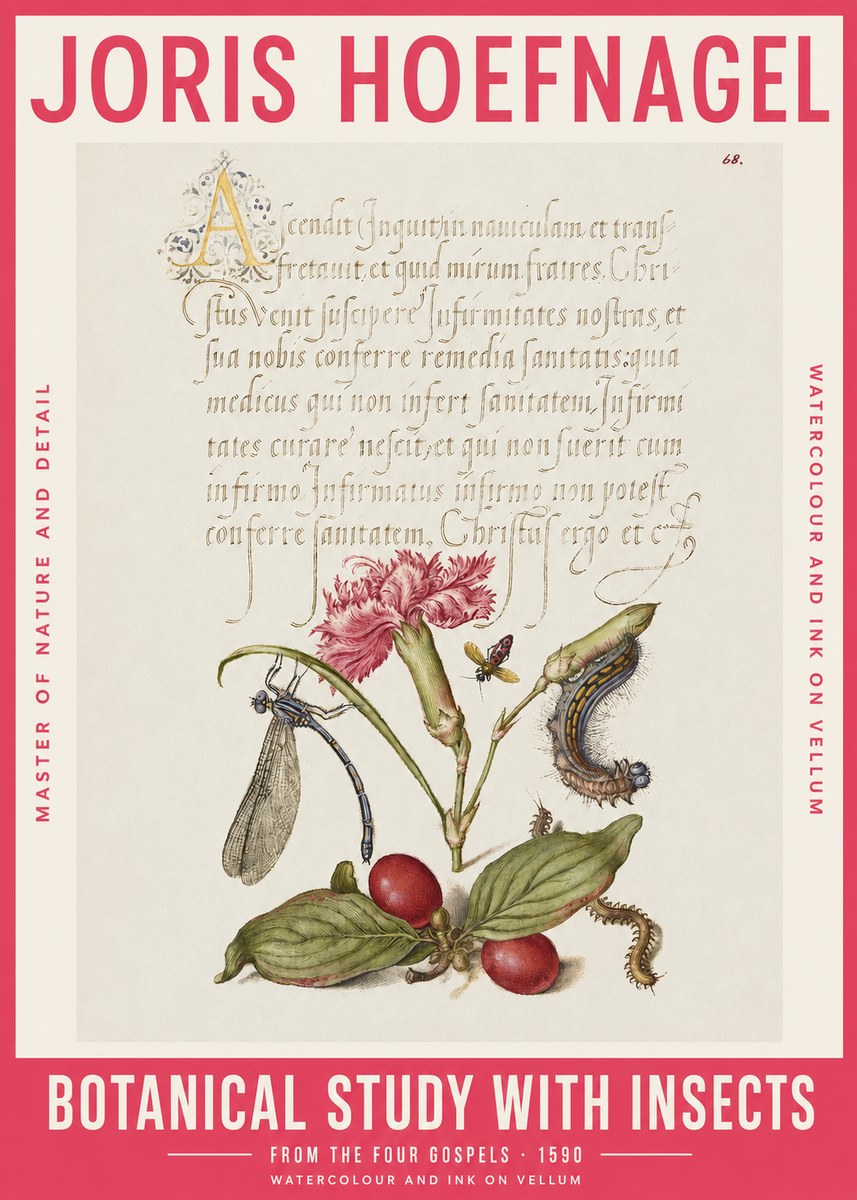 JORIS HOEFNAGEL
68.
Ascendit (Inquit) in nauiculam, et transf-
fretauit, et quid mirum fratres. Chri-
stus venit suscipere Infirmitates nostras, et
sua nobis conferre remedia sanitatis: quia
medicus qui non infert sanitatem, Infirmi
tates curare nescit, et qui non fuerit cum
infirmo Infirmatus infirmo non potest
conferre sanitatem. Christus ergo et c
MASTER OF NATURE AND DETAIL
WATERCOLOUR AND INK ON VELLUM
BOTANICAL STUDY WITH INSECTS
FROM THE FOUR GOSPELS · 1590
WATERCOLOUR AND INK ON VELLUM